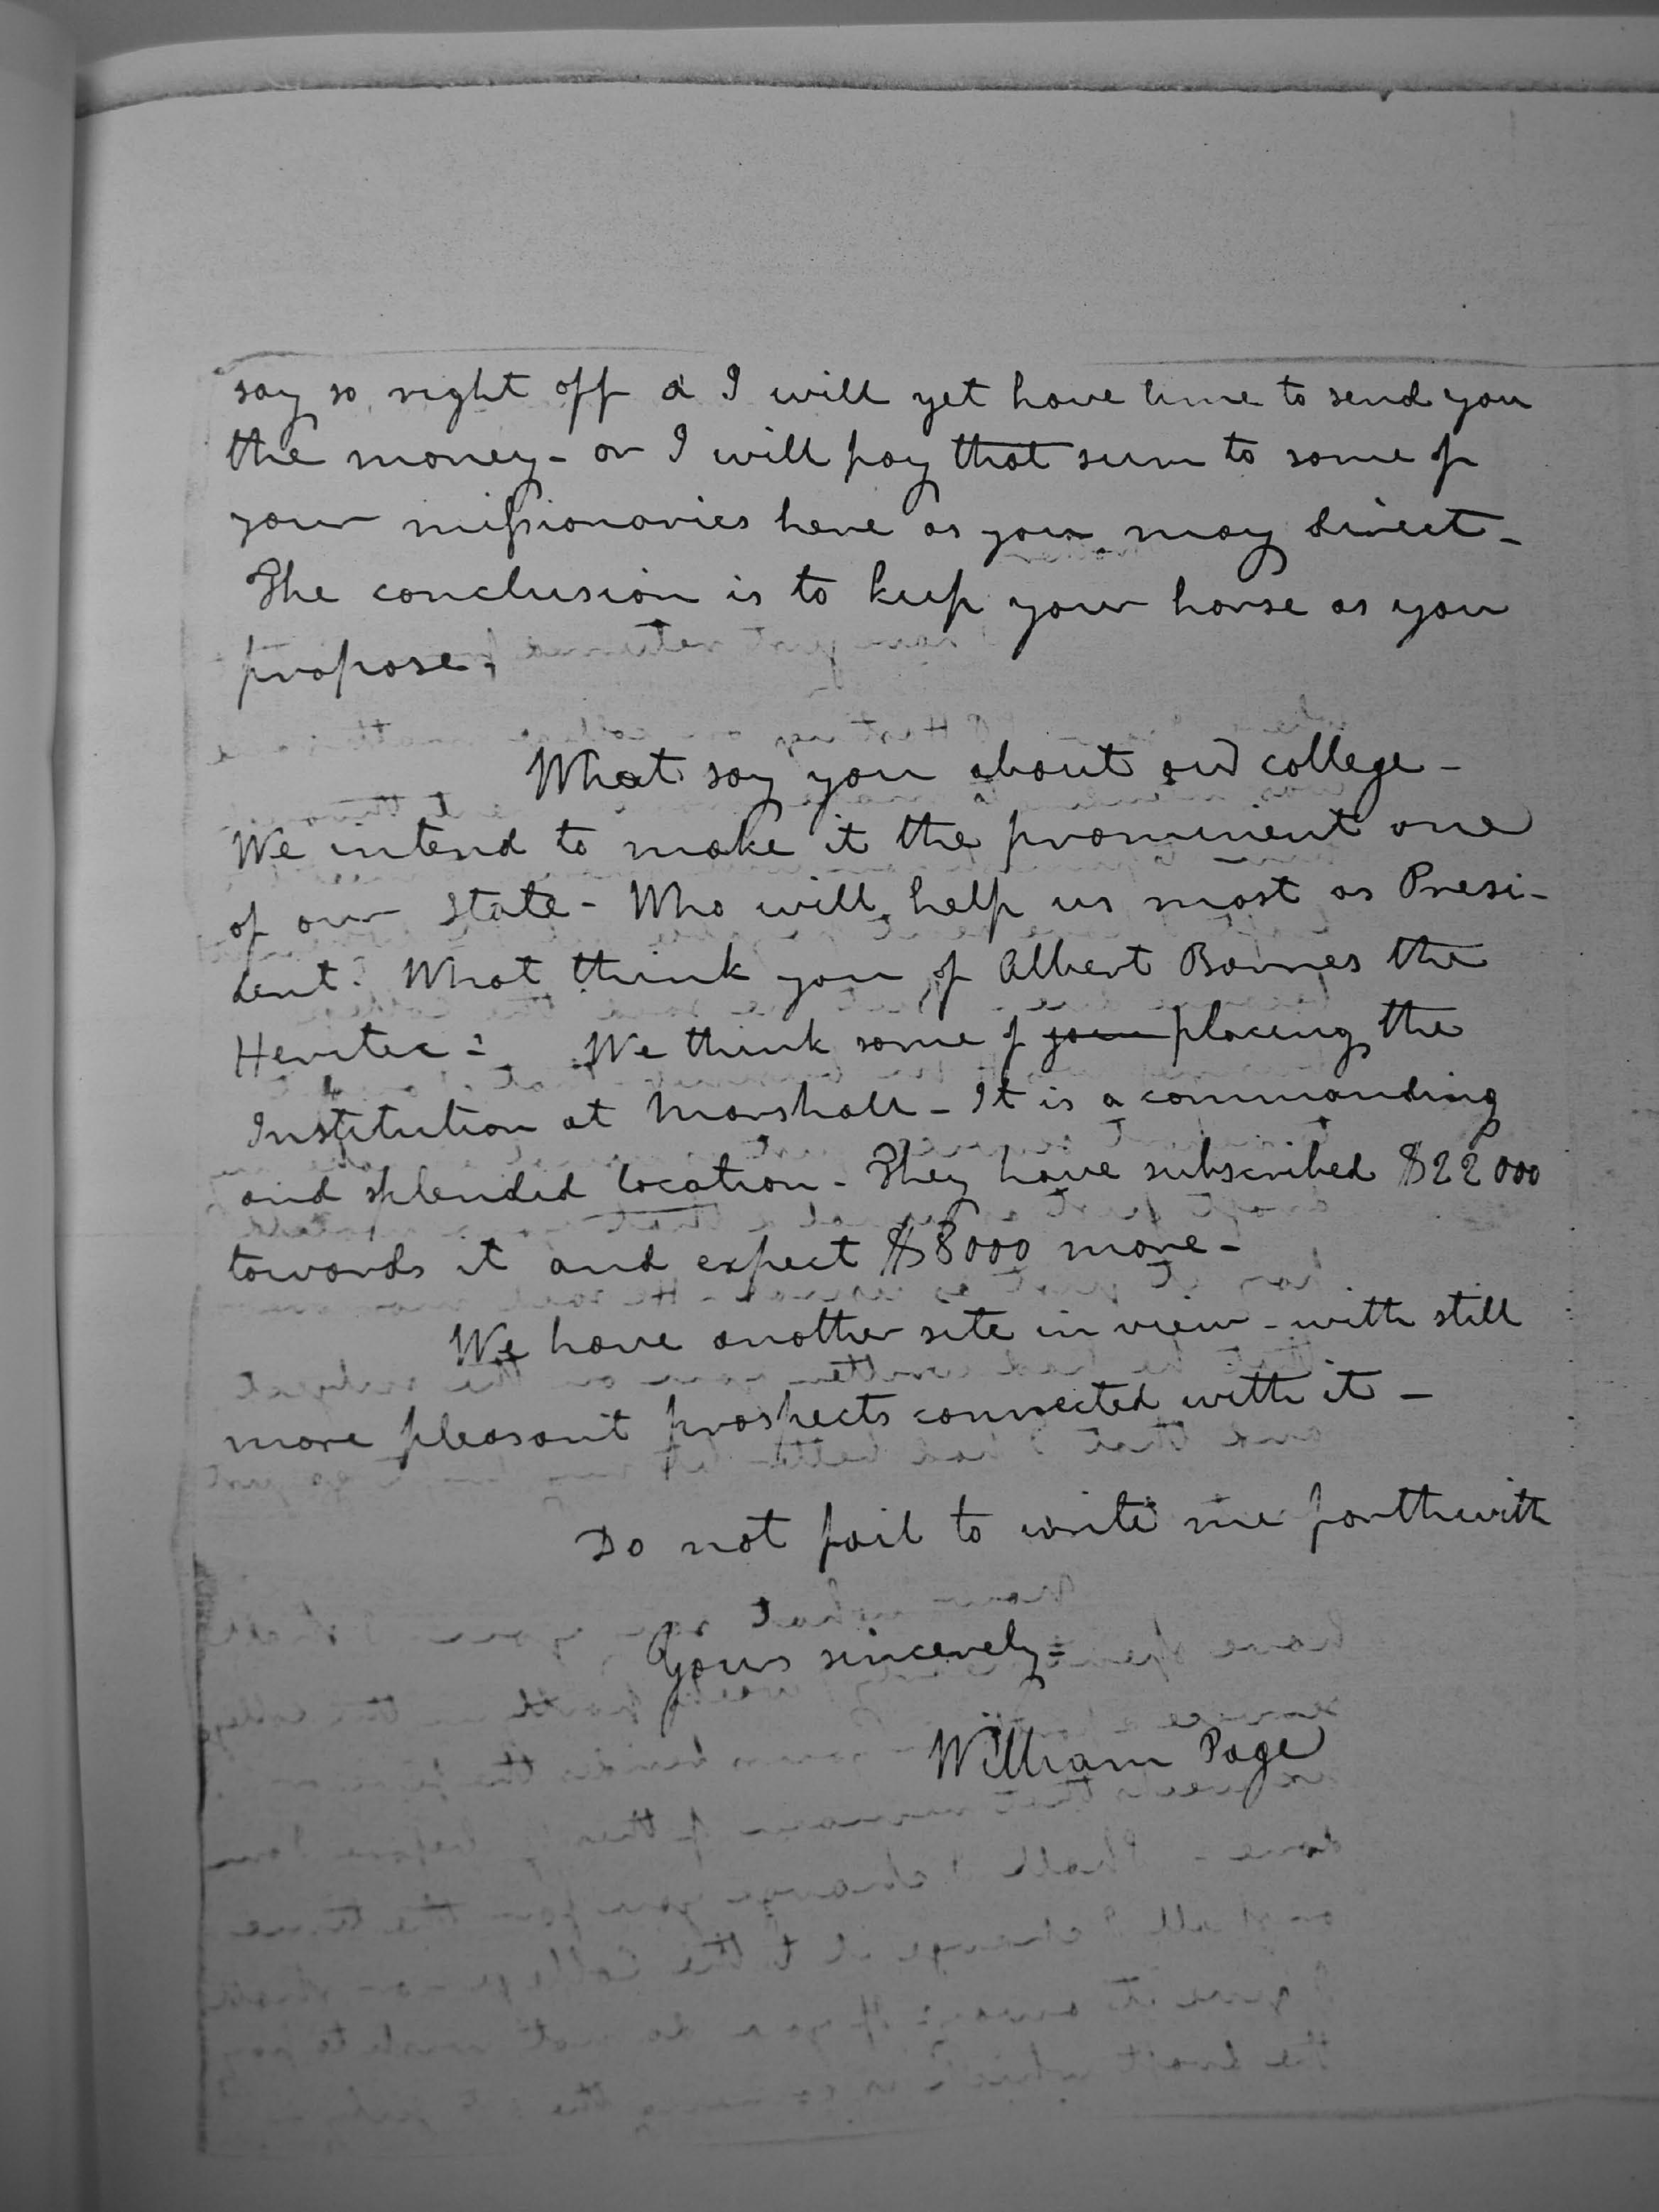 say so right off & I will yet have time to send you
the money - or I will pay that sum to some of
your missionaries here as you may direct -
The conclusion is to keep your horse as you
propose.
What say you about our college -
We intend to make it the prominent one
of our State - Who will help us most as Presi-
dent. What think you of Albert Barnes the
Heretic - We think some of placing the
Institution at Marshall - It is a commanding
and splendid location - They have subscribed $22000
towards it and expect $8000 more -
We have another site in view - with still
more pleasant prospects connected with it -
Do not fail to write me forthwith
Yours sincerely -
William Page